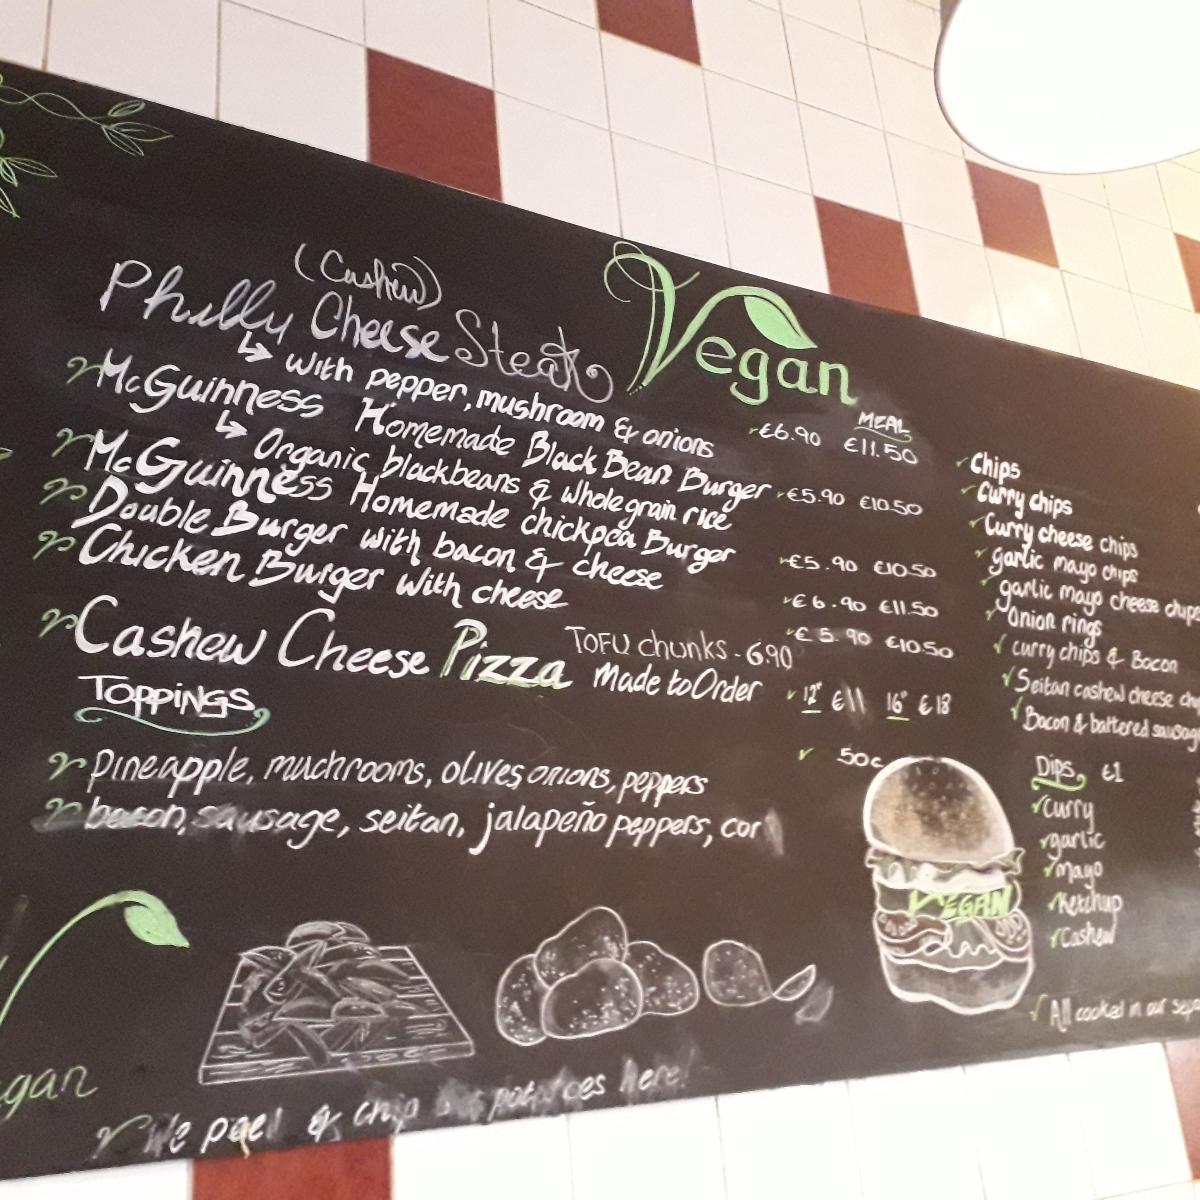 (Cashew)
Philly Cheese Steak
Vegan
with pepper, mushroom & onions
MEAL
€6.90 €11.50
McGuinness Homemade Black Bean Burger
€5.90 €10.50
Organic blackbeans & wholegrain rice
McGuinness Homemade chickpea Burger
€5.90 €10.50
Double Burger with bacon & cheese
€6.90 €11.50
Chicken Burger with cheese
€5.90 €10.50
TOFU chunks - 6.90
Cashew Cheese Pizza Made to Order
12" €11 16" €18
TOPPINGS
50c
Pineapple, muchrooms, olives, onions, peppers
bacon, sausage, seitan, jalapeño peppers, cor
Chips
Curry chips
Curry cheese chips
garlic mayo chips
garlic mayo cheese chips
Onion rings
curry chips & Bacon
Seitan cashew cheese
Bacon & battered
Dips €1
curry
garlic
mayo
Ketchup
Cashew
VEGAN
All cooked in our
We peel & chip potatoes here!